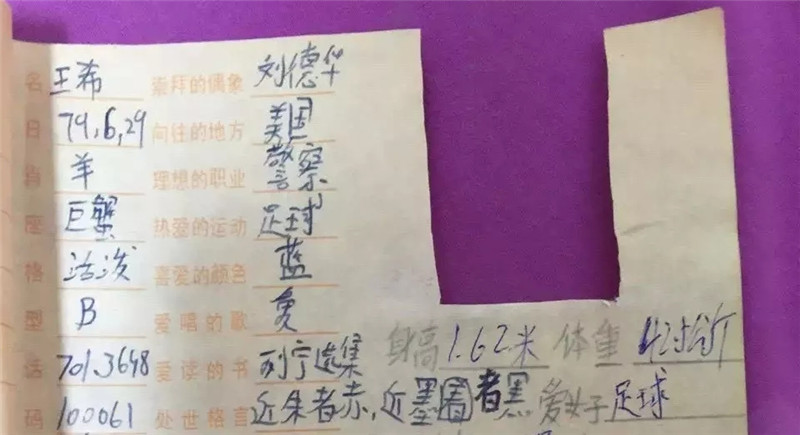 名 王希 崇拜的偶象 刘德华
日 79.6.29 向往的地方 美国
肖 羊 理想的职业 警察
座 巨蟹 热爱的运动 足球
格 活泼 喜爱的颜色 蓝
型 B 爱唱的歌 身高 1.62米 体重
话 701.3648 爱读的书 列宁选集
码 100061 处世格言 近朱者赤,近墨者黑 爱好 足球